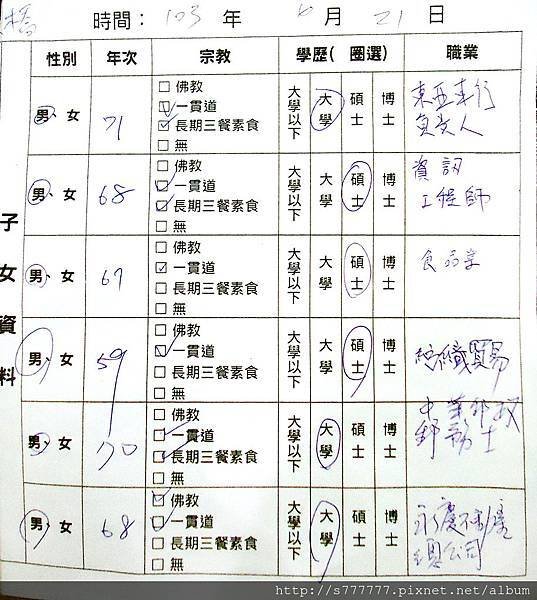 橋 時間： 103 年 6 月 21 日
性別 年次 宗教 學歷( 圈選) 職業
子女資料
男、女 71
□ 佛教
□ 一貫道
☑ 長期三餐素食
□ 無
大學以下 大學 碩士 博士
東亞車行
負責人
男、女 68
□ 佛教
☑ 一貫道
☑ 長期三餐素食
□ 無
大學以下 大學 碩士 博士
資訊
工程師
男、女 67
□ 佛教
☑ 一貫道
□ 長期三餐素食
□ 無
大學以下 大學 碩士 博士
食品業
男、女 59
□ 佛教
☑ 一貫道
□ 長期三餐素食
□ 無
大學以下 大學 碩士 博士
紡織貿易
男、女 70
□ 佛教
☑ 一貫道
☑ 長期三餐素食
□ 無
大學以下 大學 碩士 博士
中華郵政
男、女 68
☑ 佛教
☑ 一貫道
□ 長期三餐素食
□ 無
大學以下 大學 碩士 博士
永慶不動產
總公司
http://s777777.pixnet.net/album